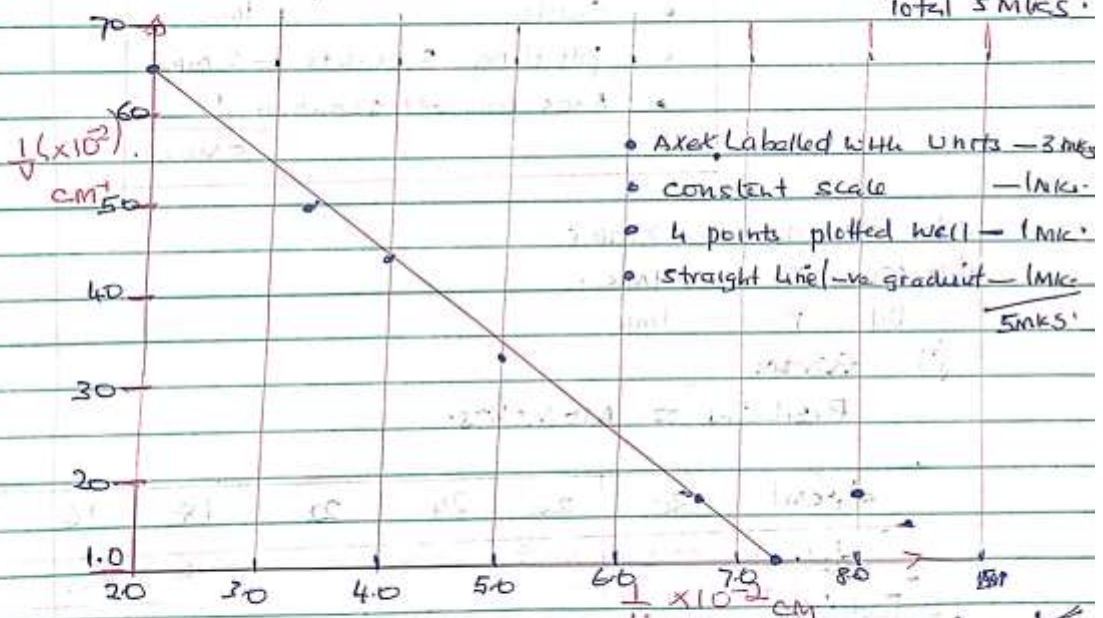 Total 5 MKS.
70
60
1/V (x10^-2)
cm^-1
50
40
30
20
1.0
• Axex Labelled with Units — 3mks
• constent scale — 1Mk.
• 4 points plotted well — 1Mk.
• straight line/-ve graduit — 1Mk.
5MKS.
2.0 3.0 4.0 5.0 6.0 7.0 8.0
1/u x10^-2 cm^-1